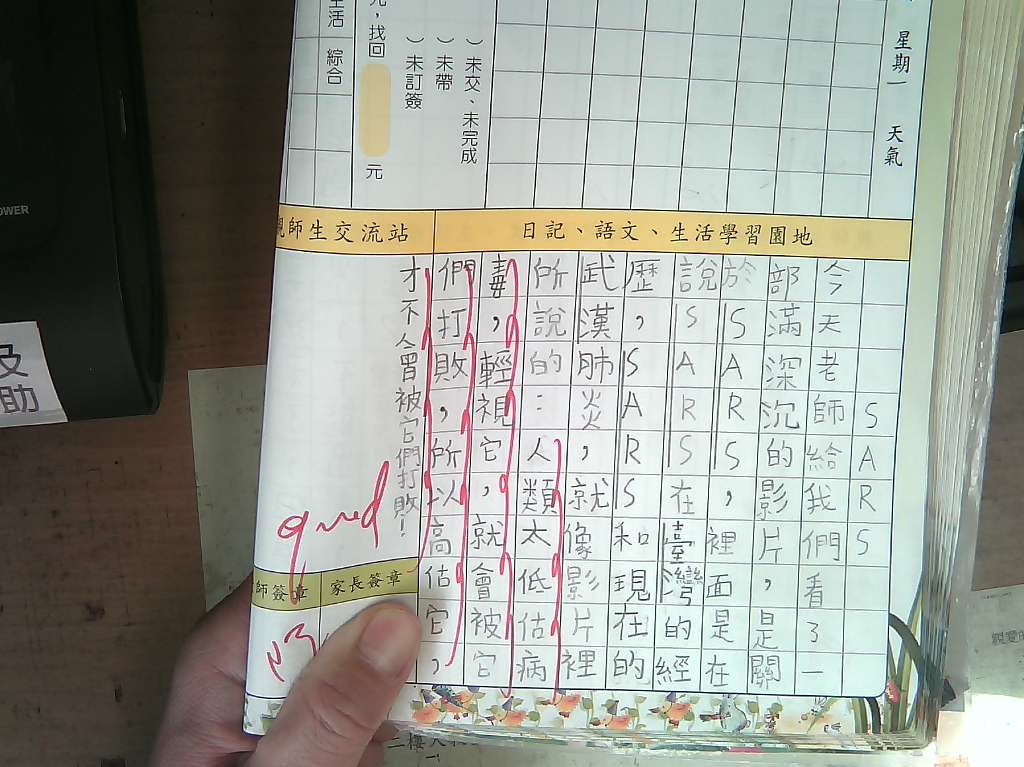 星期一 天氣
（ ）未交、未完成
（ ）未帶
（ ）未訂簽
元，找回 元
綜合
生活
日記、語文、生活學習園地
親師生交流站
SARS
今天老師給我們看了一
部滿深沉的影片，是關
於SARS，裡面是在
說SARS在臺灣的經
歷，SARS和現在的
武漢肺炎，就像影片裡
所說的：人類太低估病
毒，輕視它，就會被它
們打敗，所以高估它，
才不會被它們打敗！
家長簽章
師簽章
POWER
及
助